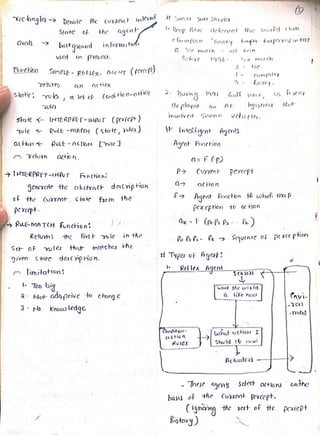 rectangles → Denote the current internal
state of the agent.
Ovals → background information
used in process.
Function SIMPLE-REFLEX-AGENT (percept)
returns an action
State: rules, a set of condition-action
rules
state ← INTERPRET-INPUT (percept)
rule ← RULE-MATCH (state, rules)
action ← RULE-ACTION [rule]
return action.
→ INTERPRET-INPUT Function:
generate the abstract description
of the current state from the
percept.
→ RULE-MATCH Function:
Returns the first rule in the
set of rules that matches the
given state description.
limitation:
1. Too big
2. Not adaptive to change
3. No knowledge
1. Deep Blue defeated the world chess
champion
Before 1996 - six match
2 - tie
1 - computer
2. During 1991 Gulf war, US forces
deployed an AI system that
involved 50000 vehicles.
# Intelligent Agents
Agent Function
a = F(p)
P → Current percept
a → action
F → Agent Function that maps
perception to action
P0 P1 P2 - Pk → Sequence of perception
# Types of Agent:
1. Reflex Agent
Sensors
what the world
is like now
Condition-
action
Rules
What action I
should do now
Actuators
Envi-
ron
-ment
- These agents select actions on the
basis of the current percept.
(Ignoring the rest of the percept
history)